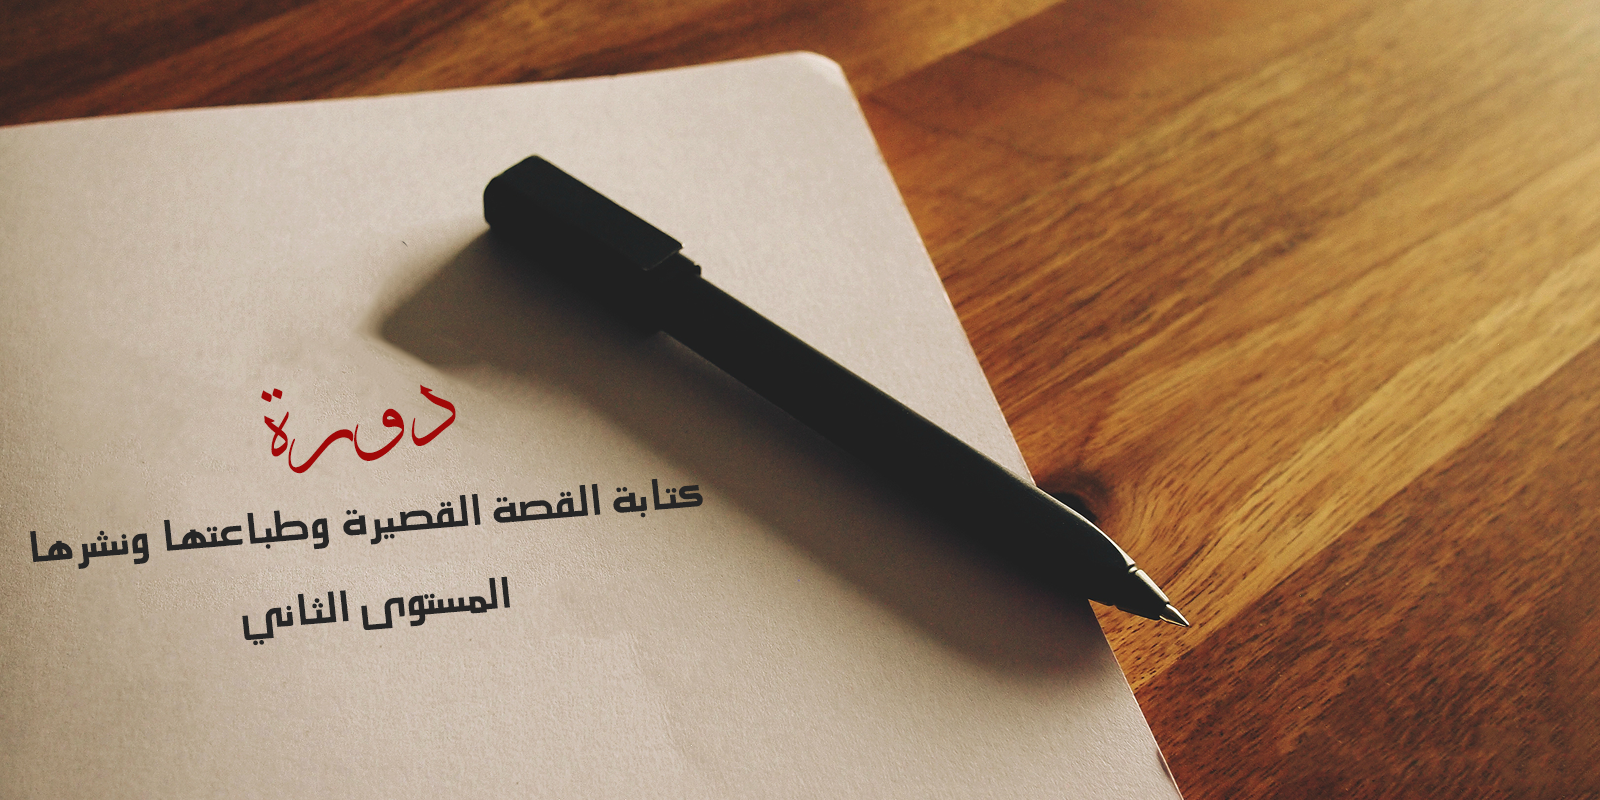 دورة
كتابة القصة القصيرة وطباعتها ونشرها
المستوى الثاني